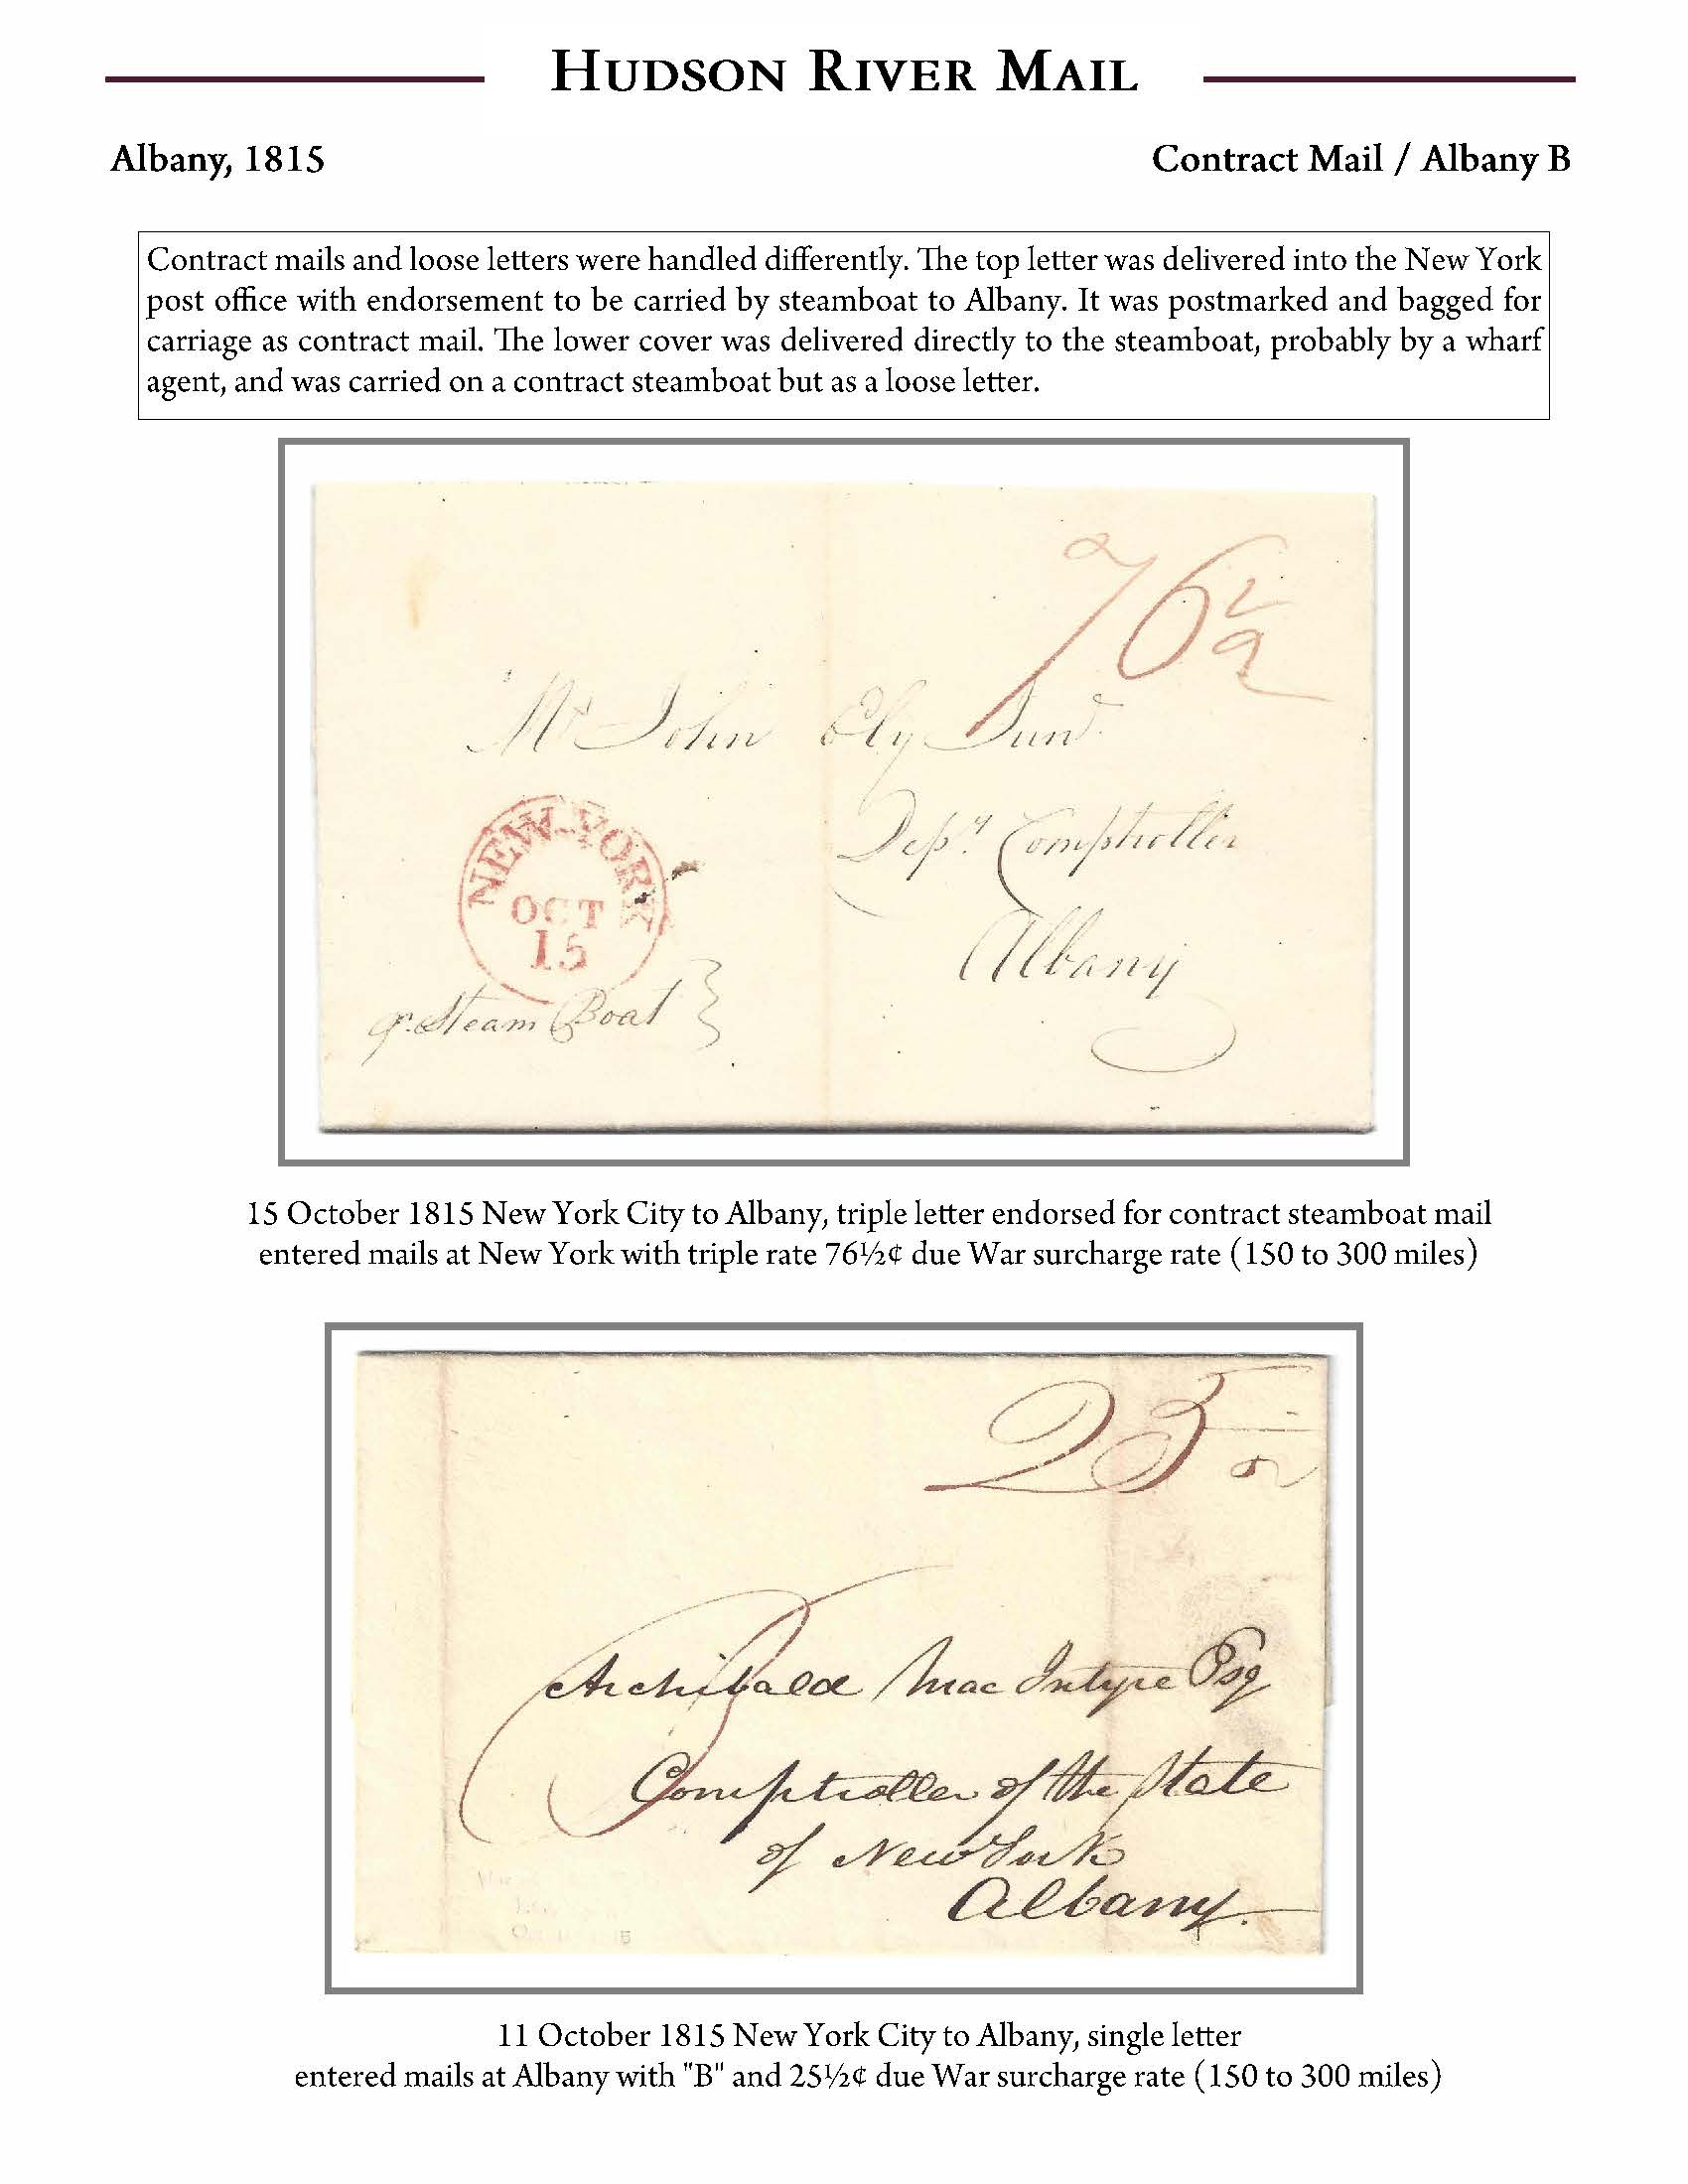 HUDSON RIVER MAIL
Albany, 1815
Contract Mail / Albany B
Contract mails and loose letters were handled differently. The top letter was delivered into the New York
post office with endorsement to be carried by steamboat to Albany. It was postmarked and bagged for
carriage as contract mail. The lower cover was delivered directly to the steamboat, probably by a wharf
agent, and was carried on a contract steamboat but as a loose letter.
76 1/2
Mr John Ely Junr
Depy Comptroller
NEW-YORK
OCT
15
Albany
pr. Steam Boat
15 October 1815 New York City to Albany, triple letter endorsed for contract steamboat mail
entered mails at New York with triple rate 76½¢ due War surcharge rate (150 to 300 miles)
25 1/2
B
Archibald MacIntyre Esq
Comptroller of the State
of New York
Albany.
11 October 1815 New York City to Albany, single letter
entered mails at Albany with "B" and 25½¢ due War surcharge rate (150 to 300 miles)